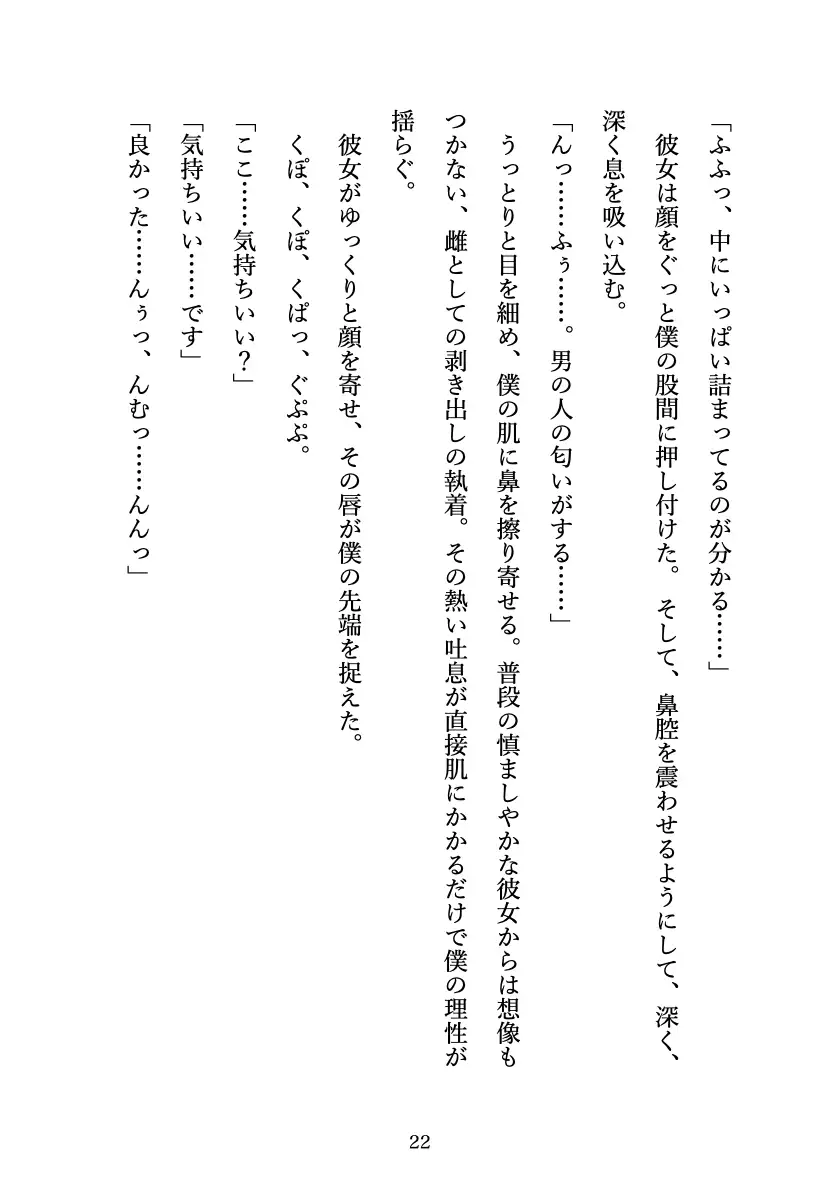 「ふふっ、中にいっぱい詰まってるのが分かる……」
　彼女は顔をぐっと僕の股間に押し付けた。そして、鼻腔を震わせるようにして、深く、
深く息を吸い込む。
「んっ……ふぅ……。男の人の匂いがする……」
　うっとりと目を細め、僕の肌に鼻を擦り寄せる。普段の慎ましやかな彼女からは想像も
つかない、雌としての剥き出しの執着。その熱い吐息が直接肌にかかるだけで僕の理性が
揺らぐ。
　彼女がゆっくりと顔を寄せ、その唇が僕の先端を捉えた。
　くぽ、くぽ、くぱっ、ぐぷぷ。
「ここ……気持ちいい？」
「気持ちいい……です」
「良かった……んぅっ、んむっ……んんっ」
22